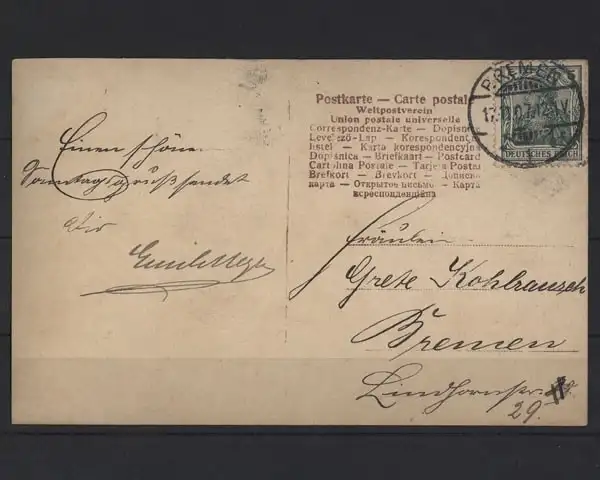 Einen schönen
Sonntagsgruß sendet
Dir
Postkarte — Carte postale
Weltpostverein
Union postale universelle
Correspondenz-Karte — Dopisnice
Levelező-Lap — Korespondenční
lístek — Karta korespondencyjna
Dopisnica — Briefkaart — Postcard
Cartolina Postale — Tarjeta Postal
Brefkort — Brevkort — Дописна
карта — Открытое письмо — Карта
всреспонденційна
BREMEN
5
DEUTSCHES REICH
Fräulein
Grete Kohlrausch
Bremen
Lindhornstr.
29.